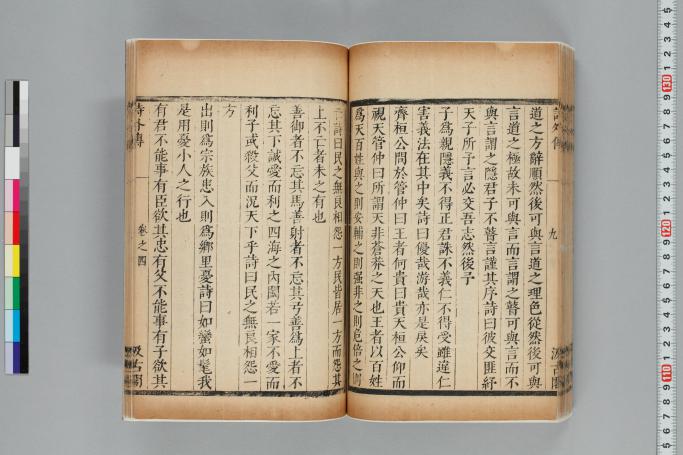 道之方辭順然後可與言道之理色從然後可與
言道之極故未可與言而言謂之瞽可與言而不
與言謂之隱君子不瞽言謹其序詩曰彼交匪紓
天子所予言必交吾志然後予
子為親隱義不得正君誅不義仁不得受雖違仁
害義法在其中矣詩曰優哉游哉亦是戾矣
齊桓公問於管仲曰王者何貴曰貴天桓公仰而
視天管仲曰所謂天非蒼莽之天也王者以百姓
為天百姓與之則安輔之則强非之則危倍之則
亡詩曰民之無良相怨一方民皆居一方而怨其
上不亡者未之有也
善御者不忘其馬善射者不忘其弓善為上者不
忘其下誠愛而利之四海之内闔若一家不愛而
利子或殺父而況天下乎詩曰民之無良相怨一
方
出則為宗族患入則為鄉里憂詩曰如蠻如髦我
是用憂小人之行也
有君不能事有臣欲其忠有父不能事有子欲其
詩外傳
卷之四
汲古閣